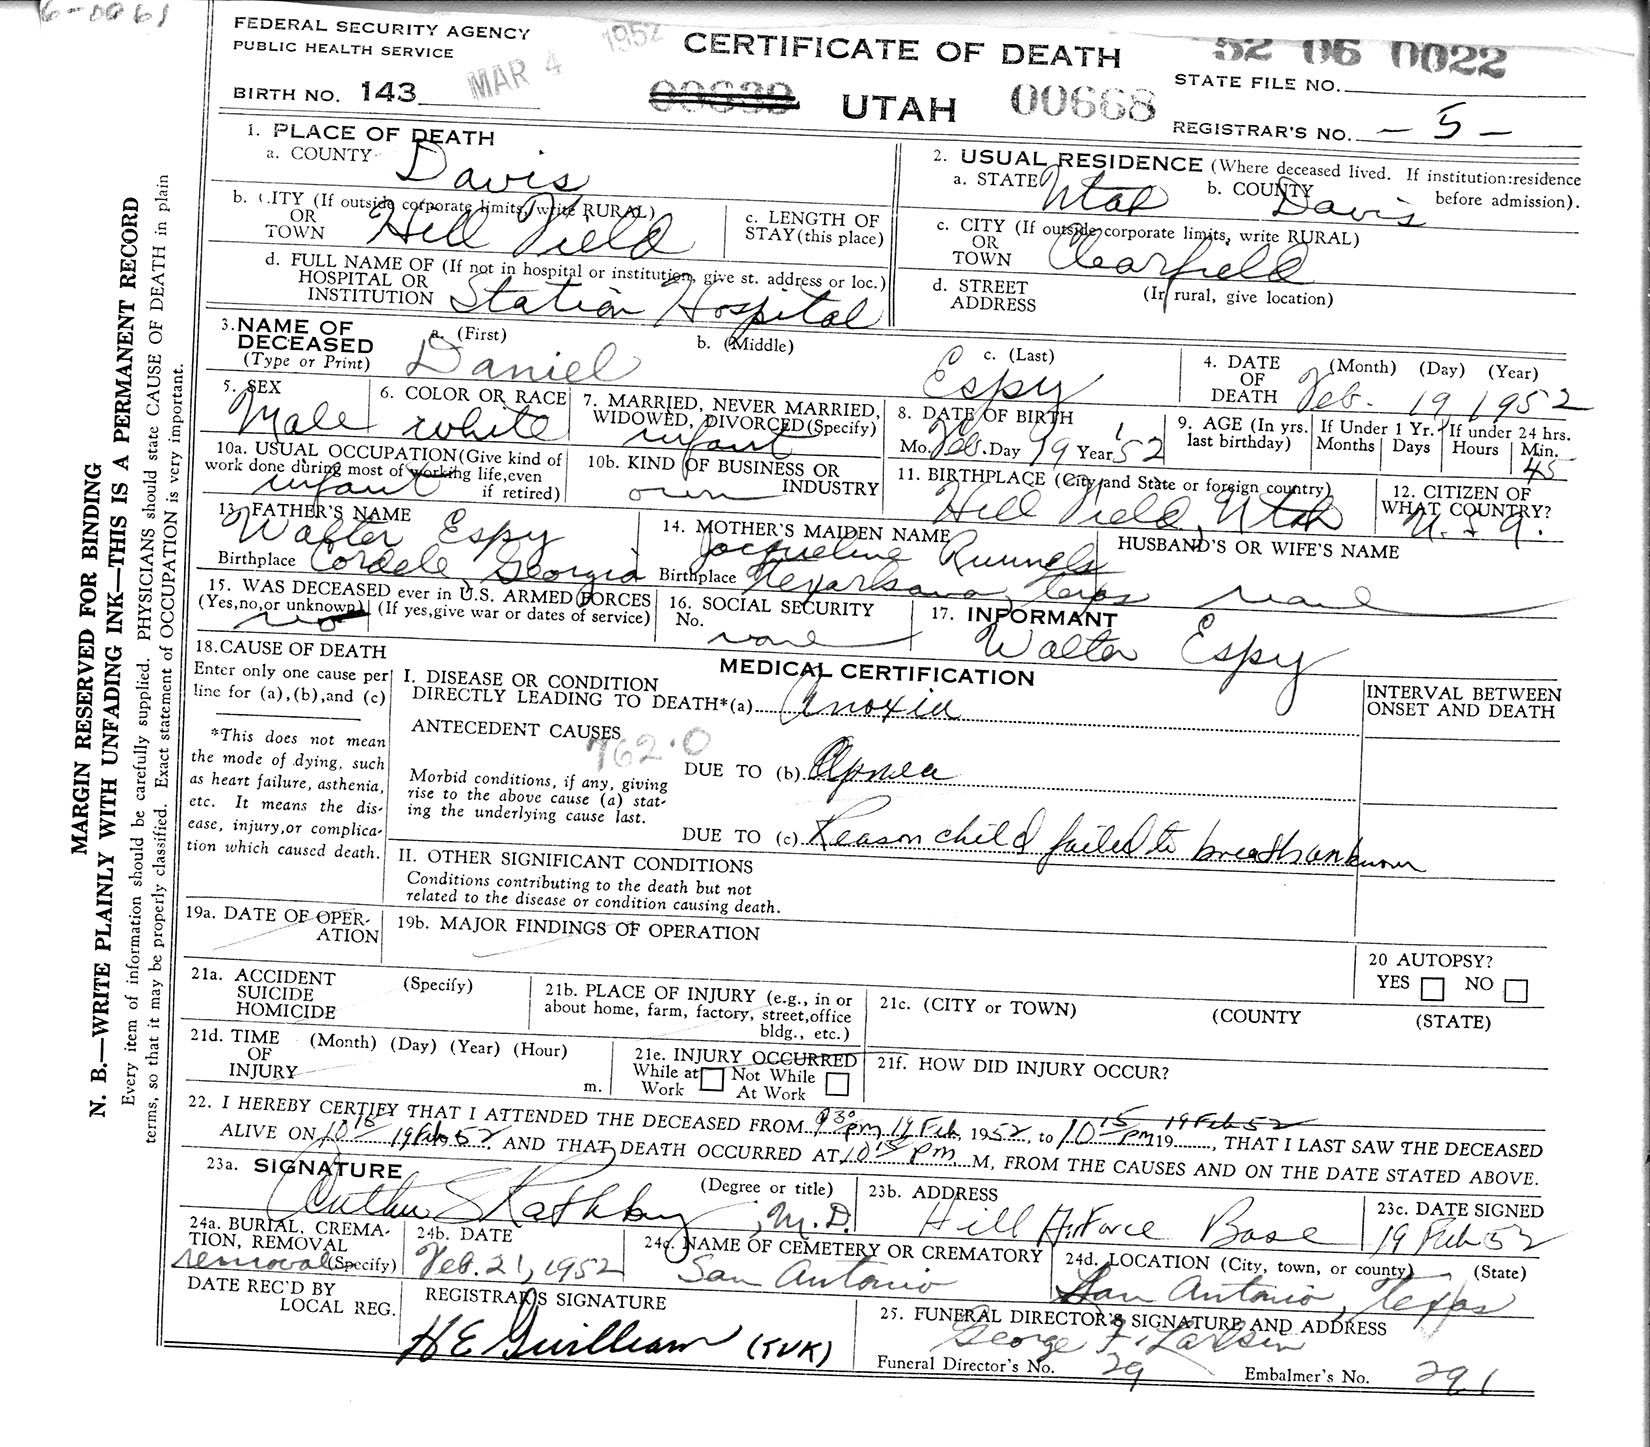 6-0061
FEDERAL SECURITY AGENCY
PUBLIC HEALTH SERVICE
MAR 4 1952
CERTIFICATE OF DEATH
52 06 0022
STATE FILE NO.
BIRTH NO. 143
UTAH 00668
REGISTRAR'S NO. - 5 -
MARGIN RESERVED FOR BINDING
N. B.—WRITE PLAINLY WITH UNFADING INK—THIS IS A PERMANENT RECORD
Every item of information should be carefully supplied. PHYSICIANS should state CAUSE OF DEATH in plain
terms, so that it may be properly classified. Exact statement of OCCUPATION is very important.
1. PLACE OF DEATH
a. COUNTY Davis
b. CITY (If outside corporate limits, write RURAL)
OR
TOWN Hill Field
c. LENGTH OF
STAY (this place)
d. FULL NAME OF (If not in hospital or institution, give st. address or loc.)
HOSPITAL OR
INSTITUTION Station Hospital
2. USUAL RESIDENCE (Where deceased lived. If institution:residence
before admission).
a. STATE Utah b. COUNTY Davis
c. CITY (If outside corporate limits, write RURAL)
OR
TOWN Clearfield
d. STREET
ADDRESS
(If rural, give location)
3. NAME OF
DECEASED
(Type or Print)
a. (First) b. (Middle) c. (Last)
Daniel Espy
4. DATE
OF
DEATH
(Month) (Day) (Year)
Feb. 19, 1952
5. SEX
Male
6. COLOR OR RACE
white
7. MARRIED, NEVER MARRIED,
WIDOWED, DIVORCED (Specify)
infant
8. DATE OF BIRTH
Mo. Feb. Day 19 Year 52
9. AGE (In yrs.
last birthday)
If Under 1 Yr.
Months Days
If under 24 hrs.
Hours Min.
45
10a. USUAL OCCUPATION (Give kind of
work done during most of working life, even
if retired)
infant
10b. KIND OF BUSINESS OR
INDUSTRY
own
11. BIRTHPLACE (City and State or foreign country)
Hill Field, Utah
12. CITIZEN OF
WHAT COUNTRY?
U.S.A.
13. FATHER'S NAME
Walter Espy
Birthplace Cordele, Georgia
14. MOTHER'S MAIDEN NAME
Jacqueline Runnels
Birthplace Texarkana, Texas
HUSBAND'S OR WIFE'S NAME
none
15. WAS DECEASED ever in U.S. ARMED FORCES
(Yes, no, or unknown) (If yes, give war or dates of service)
no
16. SOCIAL SECURITY
No.
none
17. INFORMANT
Walter Espy
18. CAUSE OF DEATH
Enter only one cause per
line for (a), (b), and (c)
*This does not mean
the mode of dying, such
as heart failure, asthenia,
etc. It means the dis-
ease, injury, or complica-
tion which caused death.
MEDICAL CERTIFICATION
I. DISEASE OR CONDITION
DIRECTLY LEADING TO DEATH*(a) Anoxia
INTERVAL BETWEEN
ONSET AND DEATH
ANTECEDENT CAUSES
762.0
Morbid conditions, if any, giving
rise to the above cause (a) stat-
ing the underlying cause last.
DUE TO (b) Apnea
DUE TO (c) Reason child failed to breath unknown
II. OTHER SIGNIFICANT CONDITIONS
Conditions contributing to the death but not
related to the disease or condition causing death.
19a. DATE OF OPER-
ATION
19b. MAJOR FINDINGS OF OPERATION
20 AUTOPSY?
YES NO
21a. ACCIDENT
SUICIDE
HOMICIDE
(Specify)
21b. PLACE OF INJURY (e.g., in or
about home, farm, factory, street, office
bldg., etc.)
21c. (CITY or TOWN) (COUNTY (STATE)
21d. TIME
OF
INJURY
(Month) (Day) (Year) (Hour)
m.
21e. INJURY OCCURRED
While at
Work
Not While
At Work
21f. HOW DID INJURY OCCUR?
22. I HEREBY CERTIFY THAT I ATTENDED THE DECEASED FROM 9 30 pm 19 Feb, 1952, to 10 15 pm 19 Feb 52 19......, THAT I LAST SAW THE DECEASED
ALIVE ON 10 15 19 Feb 52 AND THAT DEATH OCCURRED AT 10 15 pm M, FROM THE CAUSES AND ON THE DATE STATED ABOVE.
23a. SIGNATURE
(Degree or title)
M.D.
23b. ADDRESS
Hill AirForce Base
23c. DATE SIGNED
19 Feb 52
24a. BURIAL, CREMA-
TION, REMOVAL
(Specify)
removal
24b. DATE
Feb. 21, 1952
24c. NAME OF CEMETERY OR CREMATORY
San Antonio
24d. LOCATION (City, town, or county) (State)
San Antonio, Texas
DATE REC'D BY
LOCAL REG.
REGISTRAR'S SIGNATURE
H E Guilliam (TVK)
25. FUNERAL DIRECTOR'S SIGNATURE AND ADDRESS
George F. Larkin
Funeral Director's No. 29 Embalmer's No. 291